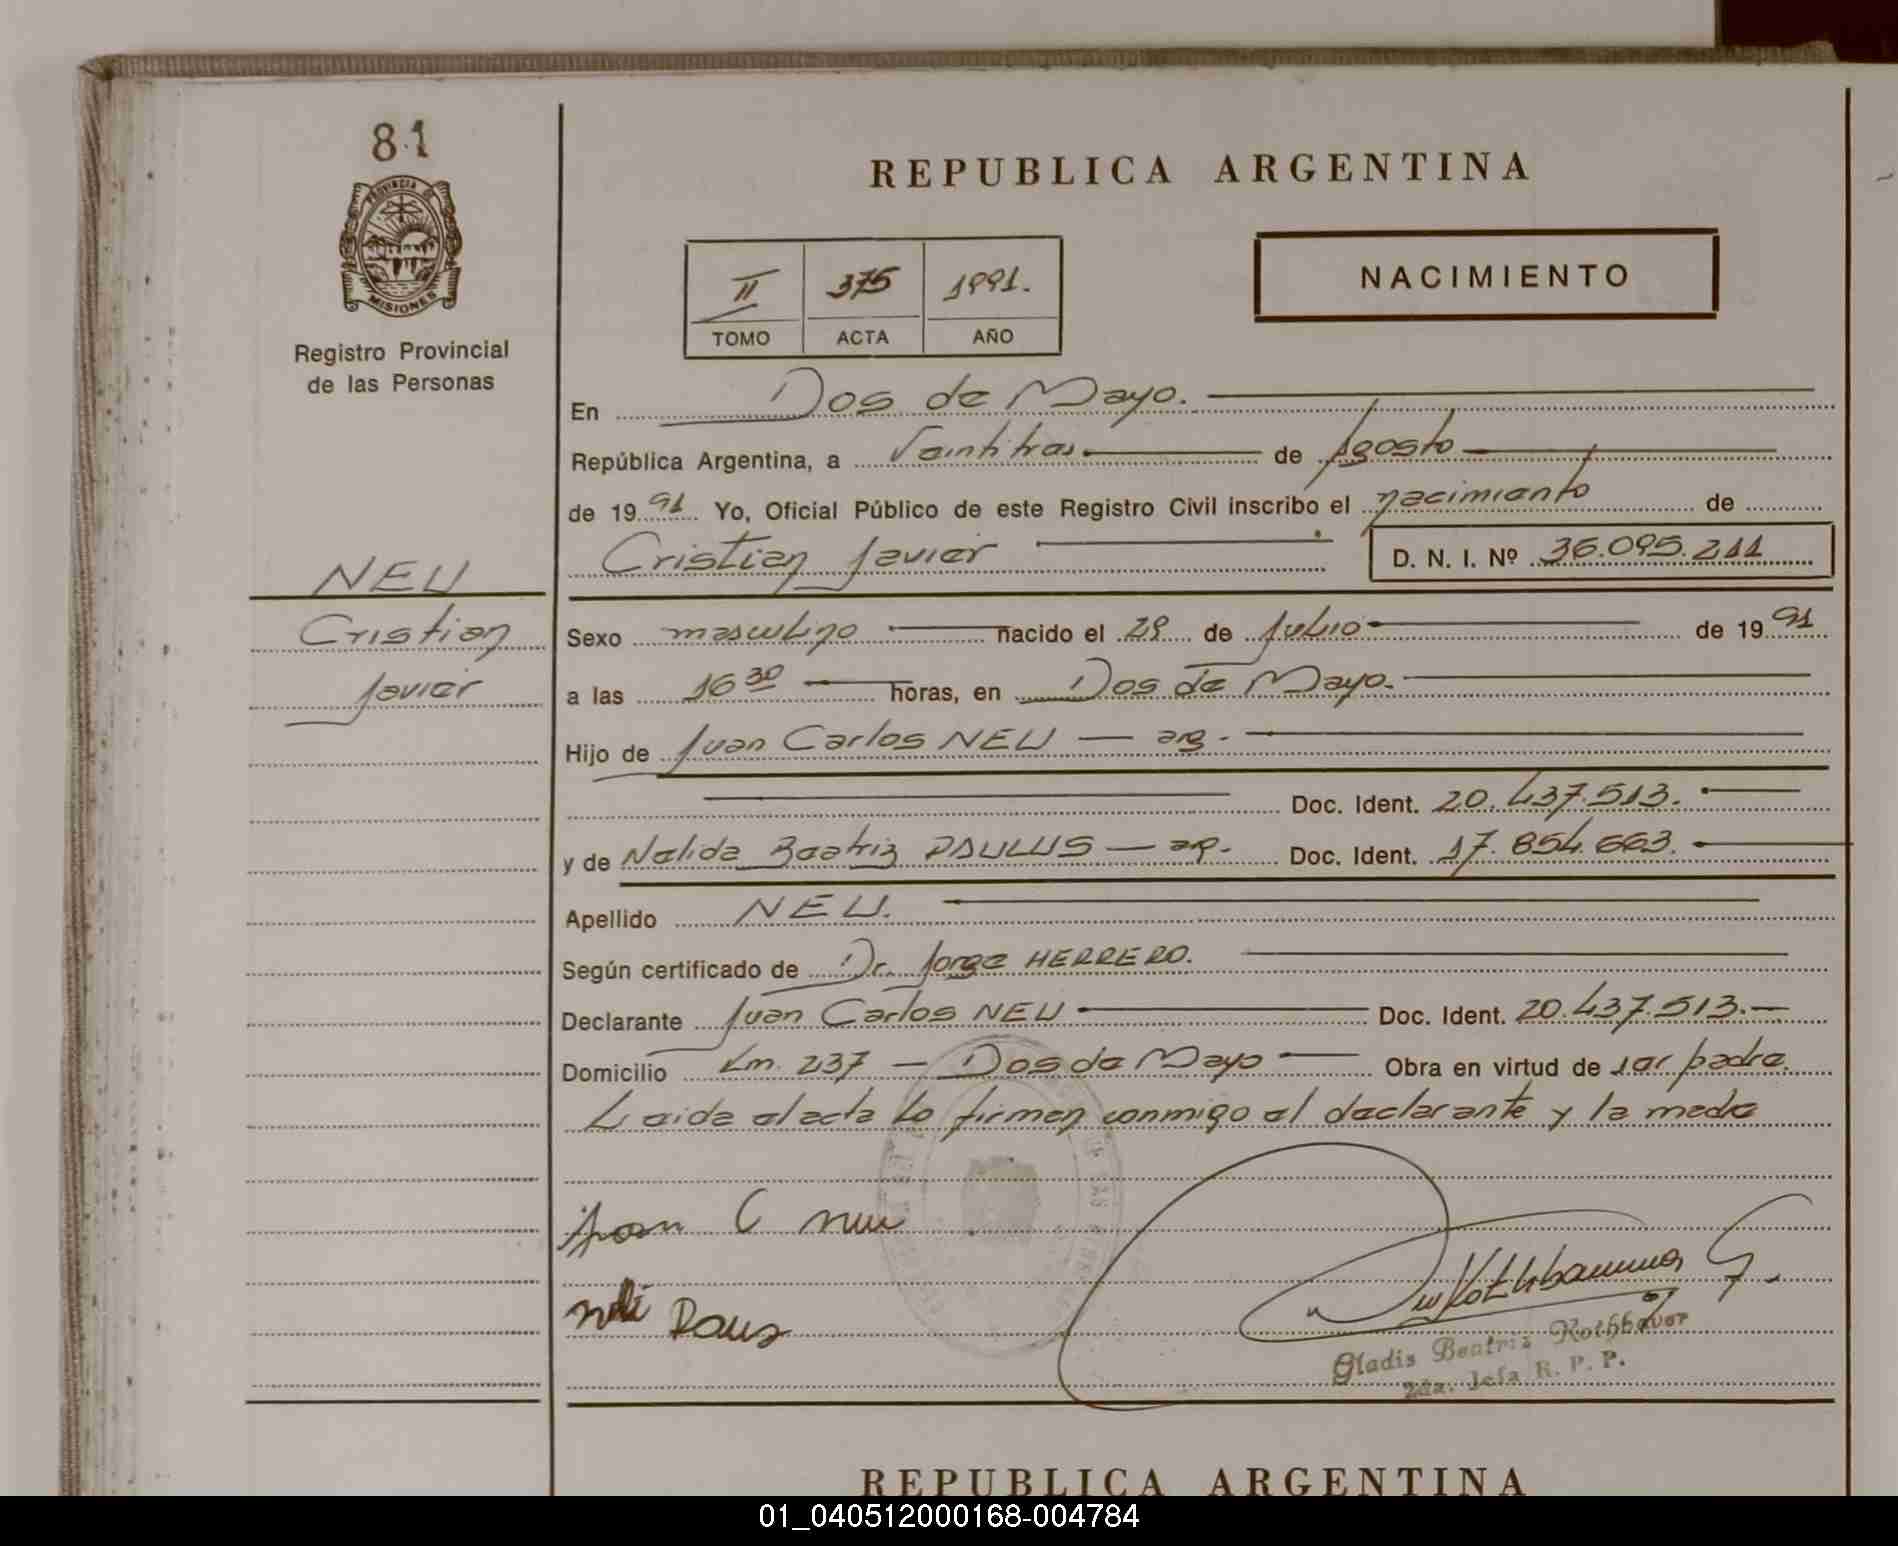 81
PROVINCIA D
MISIONES
Registro Provincial
de las Personas
NEU
Cristian
Javier
REPUBLICA ARGENTINA
II 375 1991.
TOMO ACTA AÑO
NACIMIENTO
En Dos de Mayo.
República Argentina, a Veintitres de Agosto
de 1991 Yo, Oficial Público de este Registro Civil inscribo el nacimiento de
Cristian Javier D. N. I. Nº 36.095.211
Sexo masculino nacido el 29 de Julio de 1991
a las 16 30 horas, en Dos de Mayo.
Hijo de Juan Carlos NEU — arg.
Doc. Ident. 20.437.513.
y de Nelida Beatriz PAULUS — ar. Doc. Ident. 17.854.663.
Apellido NEU.
Según certificado de Dr. Jorge HERRERO.
Declarante Juan Carlos NEU Doc. Ident. 20.437.513.
Domicilio Km. 237 — Dos de Mayo Obra en virtud de ser padre.
Leida el acta la firman conmigo el declarante y la madre
Juan C neu
Gladis Beatriz Rothbauer
2da. Jefa R. P. P.
REPUBLICA ARGENTINA
01_040512000168-004784